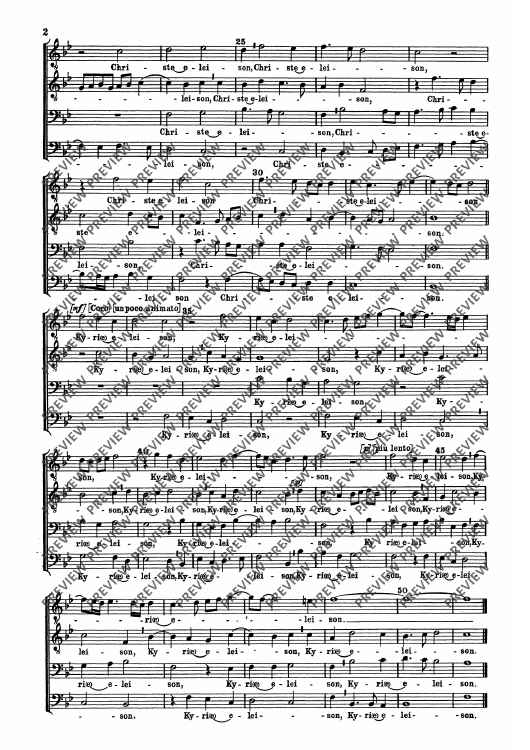 2
25
Chri - ste e - lei - son, Chri - ste e - lei - son,
lei - son, Chri - ste e - lei - son, Chri -
Chri - ste e - lei - son, Chri - ste e
lei - son, Chri - ste e -
30
Chri - ste e - lei - son Chri - ste e lei - son
ste e - lei - son.
lei - son, Chri - ste e - lei - son.
lei - son Chri - ste e - lei - son.
[mf] [Coro] [un poco animato] 35
Ky - rie e - lei - son, Ky - rie e - lei -
Ky - rie e - lei - son, Ky - rie e - lei - son,
Ky - rie e - lei - son, Ky -
Ky - rie e lei - son, Ky - rie e - lei - son,
40 [p] [più lento] 45
son, Ky - rie e - lei - son, Ky - rie e - lei - son, Ky
son, Ky - rie e - lei - son, Ky - rie e - lei - son, Ky - rie e -
rie e - lei - son, Ky - rie e - lei - son, Ky - rie e - lei - son, Ky -
Ky - rie e - lei - son, Ky - rie e - lei - son, Ky - rie e - lei - son, Ky - rie e - lei
50
rie e - lei - son
lei - son, Ky - rie e - lei - son, Ky - rie e - lei - son.
rie e - lei - son, Ky - rie e - lei - son, Ky - rie e - lei - son.
son. Ky - rie e - lei - son, Ky - rie e - lei - son.